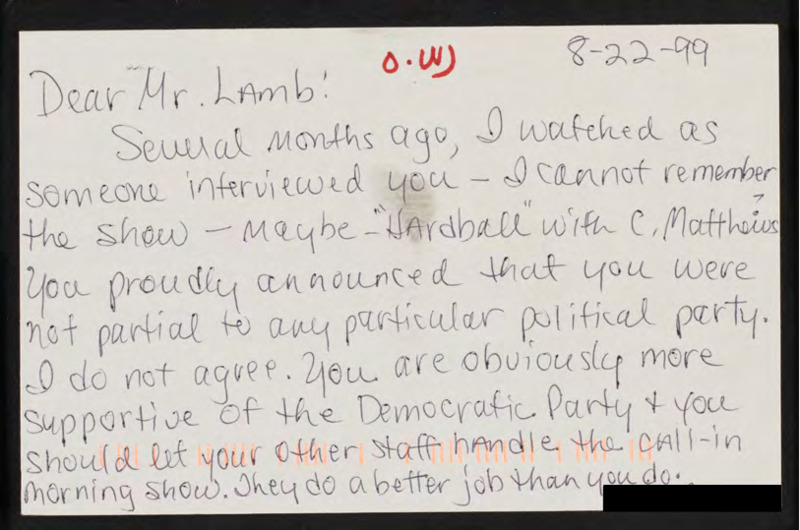 O.W)
8-22-99
Dear Mr. Lamb:
Several months ago, I watched as
someone interviewed you - I cannot remember
the show - maybe - "Hardball" with C. Matthews?
You proudly announced that you were
not partial to any particular political party.
I do not agree. You are obviously more
supportive of the Democratic Party + you
should let your other staff handle the call-in
morning show. They do a better job than you do.